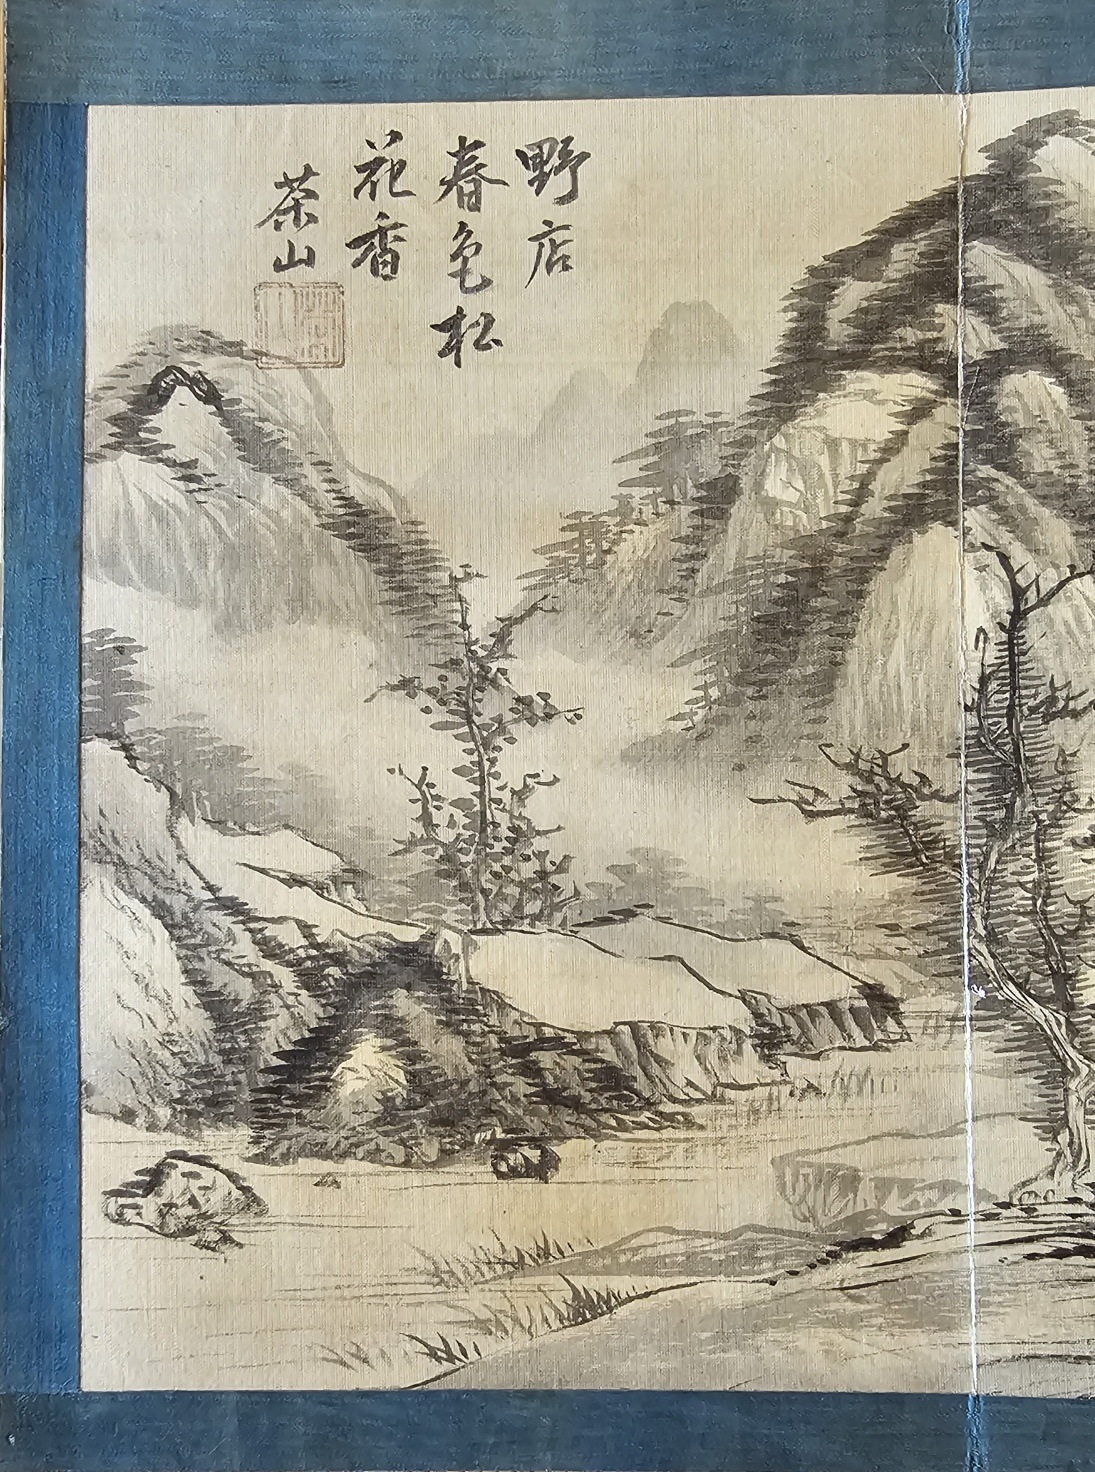 野店
春色松
花香
茶山